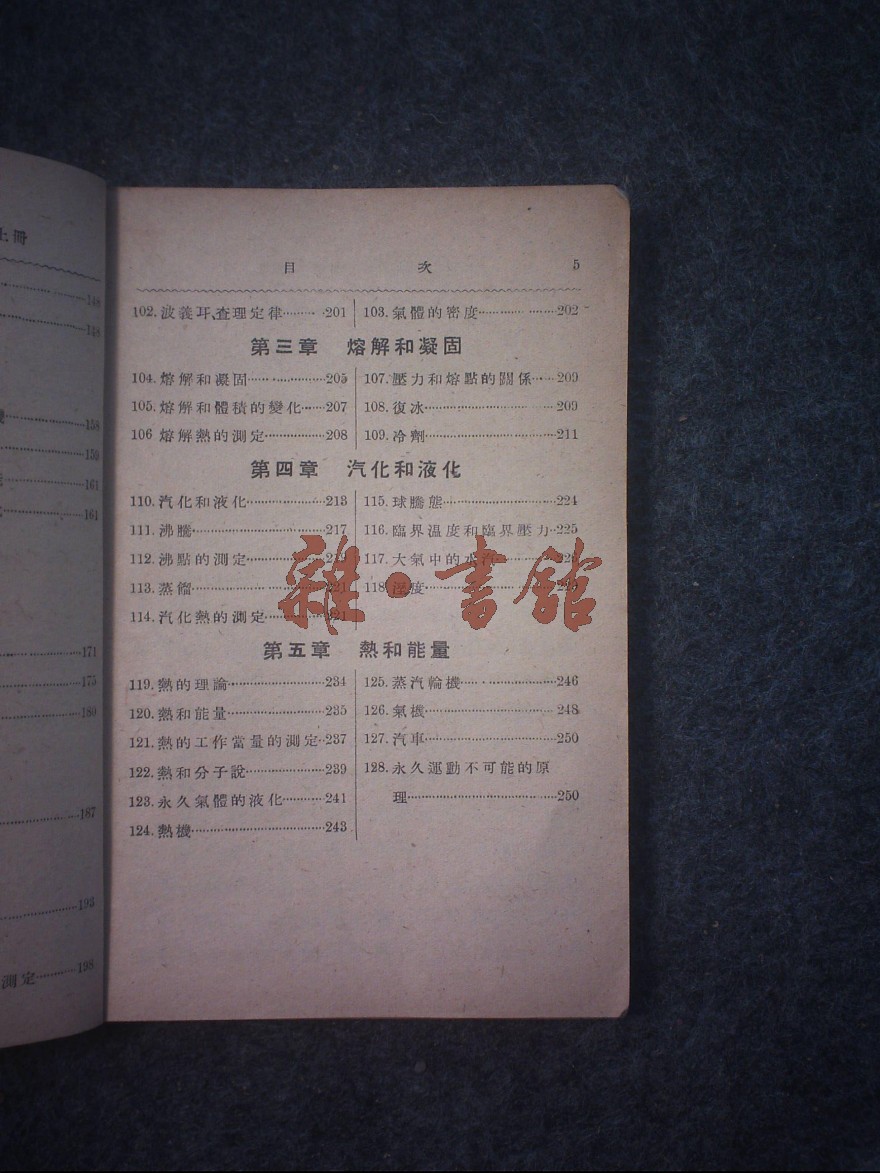 上冊
148
148
158
159
161
161
171
175
180
187
193
測定 198
目 次 5
102. 波義耳、查理定律 201
第三章 熔解和凝固
104. 熔解和凝固 205
105. 熔解和體積的變化 207
106 熔解熱的測定 208
103. 氣體的密度 202
107. 壓力和熔點的關係 209
108. 復冰 209
109. 冷劑 211
第四章 汽化和液化
110. 汽化和液化 213
111. 沸騰 217
112. 沸點的測定
113. 蒸餾 221
114. 汽化熱的測定
115. 球騰態 224
116. 臨界温度和臨界壓力 225
117. 大氣中的水汽
118 溼度
第五章 熱和能量
119. 熱的理論 234
120. 熱和能量 235
121. 熱的工作當量的測定 237
122. 熱和分子說 239
123. 永久氣體的液化 241
124. 熱機 243
125. 蒸汽輪機 246
126. 氣機 248
127. 汽車 250
128. 永久運動不可能的原
理 250
雜·書館